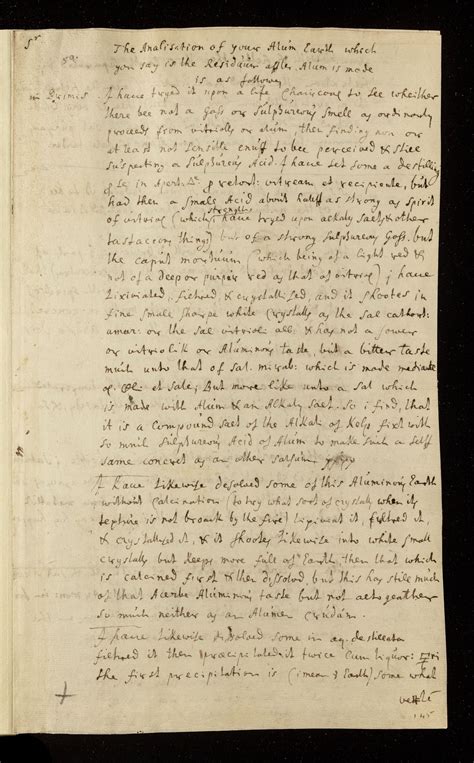 Sr
The Analisation of your Alum Earth which
you say is the Residuum after Alum is made
is as followes
in Primis I have tryed it upon a life Chaircone to See wheither
there bee not a Gass or Sulphureous Smell as ordinarily
proceeds from vitriolls or Alum, then finding non or
at least not Sensible enuff to bee perceived & still
Suspecting a Sulphureous Acid. I have Set Some a destilling
retort: vitream et recipiente, but
had then a Small Acid about halff as Strong as Spirit
of vitriol (which Strength I have tryed upon alkaly Salts & other
things) but of a Strong Sulphureous Gass. but
the caput mortuum (which being of a light red &
not of a deep or purper red as that of vitriol) I have
Lixiviated, filtred, & crystallised, and it Shootes in
fine Small Sharpe white Crystalls as the Sal cathart:
amar: or the Sal vitrioli alb: & has not a Sower
or vitriolik or Aluminous taste, but a bitter taste
much unto that of Sal. mirab: which is made mediante
et Sale; But more like unto a Sal which
is made with Alum & an Alkaly Salt. So i find, that
it is a Compound Salt of the Alkali of Kelp fixt with
So much Sulphureous Acid of Alum to make Such a Self
Same concret as an other Salsum
I have Likewise desolved some of this Aluminous Earth
without Calcination (to try what Sort of crystalls when its
texture is not broauk by the fire) Lixiviat it, filtred it,
& crystallysed it, & it Shootes Likewise into white Small
Crystalls but Keeps more full of Earth, then that which
is calcined first & then dissolved, but this has still much
of that Acerbe Aluminous taste but not altogeather
So much neither as an Alumen crudum.
I have Likewise disolved some in aq. destillata
filtred it then præcipitated it twice Cum liquor:
the first precipitation is (i mean ye Earth) Some what
145